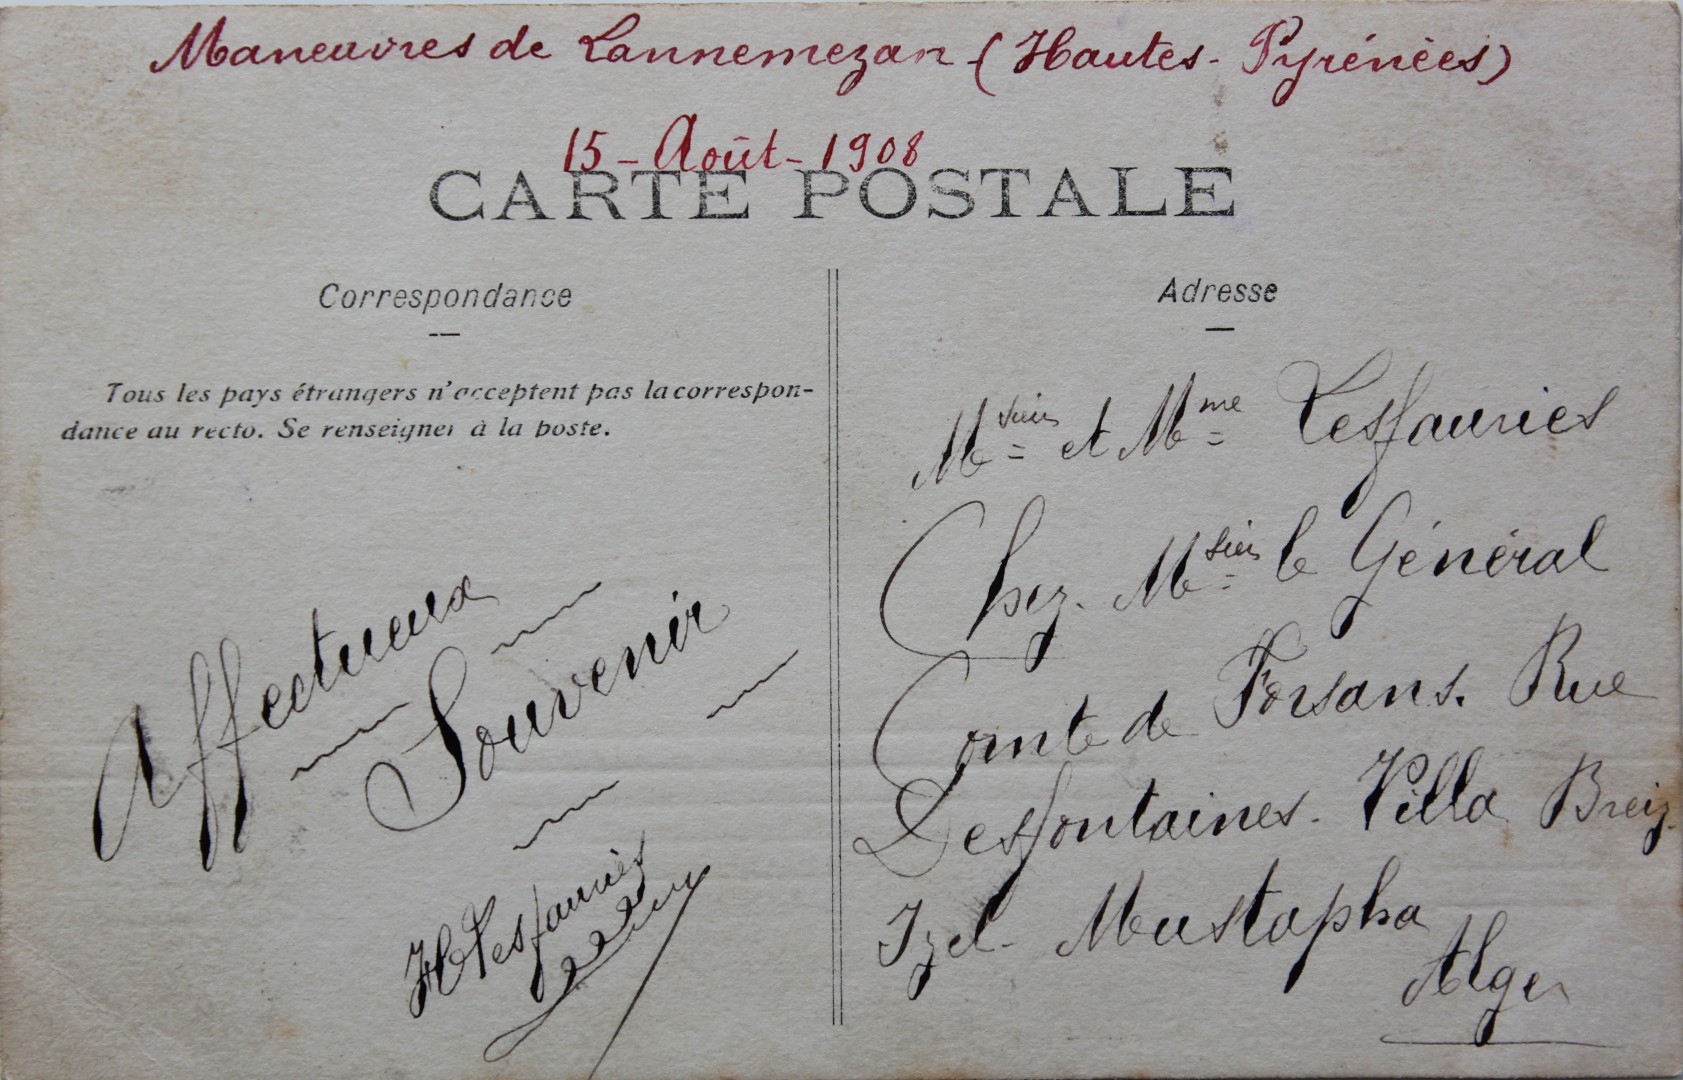 Maneuvres de Lannemezan (Hautes-Pyrénées)
15-Août-1908
CARTE POSTALE
Correspondance
Tous les pays étrangers n'acceptent pas la correspon-
dance au recto. Se renseigner à la poste.
Affectueux
Souvenir
H Lesfauriès
Adresse
Msieur et Mme Lesfauries
Chez Msieur le Général
Comte de Forsans. Rue
Desfontaines. Villa Breiz.
Izel- Mustapha
Alger